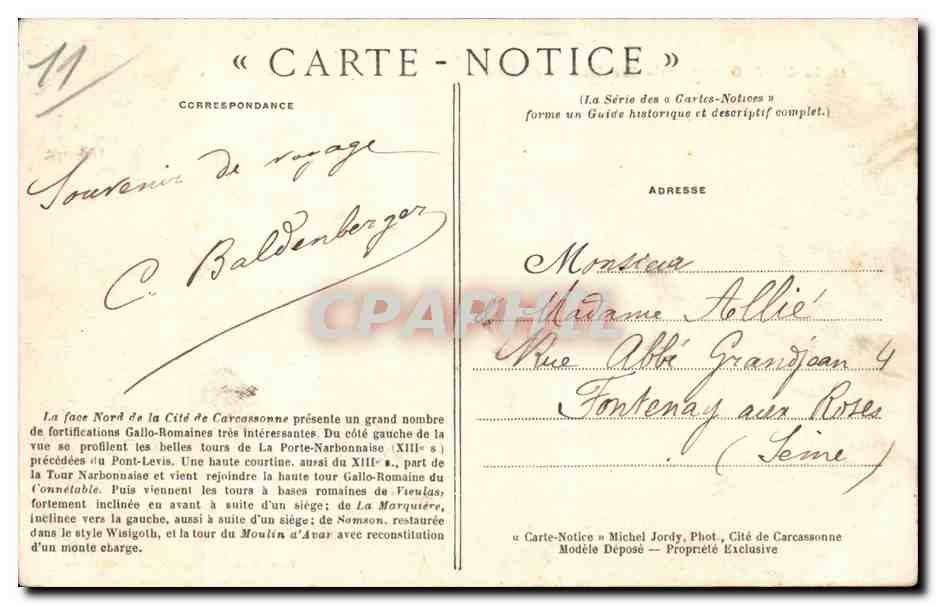 11
« CARTE - NOTICE »
CORRESPONDANCE
Souvenir de voyage
C. Baldenberger
La face Nord de la Cité de Carcassonne présente un grand nombre
de fortifications Gallo-Romaines très intéressantes. Du côté gauche de la
vue se profilent les belles tours de La Porte-Narbonnaise (XIIIe s)
précédées du Pont-Levis. Une haute courtine, aussi du XIIIe s., part de
la Tour Narbonnaise et vient rejoindre la haute tour Gallo-Romaine du
Connétable. Puis viennent les tours à bases romaines de Vieulas,
fortement inclinée en avant à suite d'un siège; de La Marquière,
inclinée vers la gauche, aussi à suite d'un siège; de Samson, restaurée
dans le style Wisigoth, et la tour du Moulin d'Avar avec reconstitution
d'un monte charge.
(La Série des « Cartes-Notices »
forme un Guide historique et descriptif complet.)
ADRESSE
Monsieur
et Madame Allié
Rue Abbé Grandjean 4
Fontenay aux Roses
(Seine)
« Carte-Notice » Michel Jordy, Phot., Cité de Carcassonne
Modèle Déposé — Propriété Exclusive
CPARPHIL